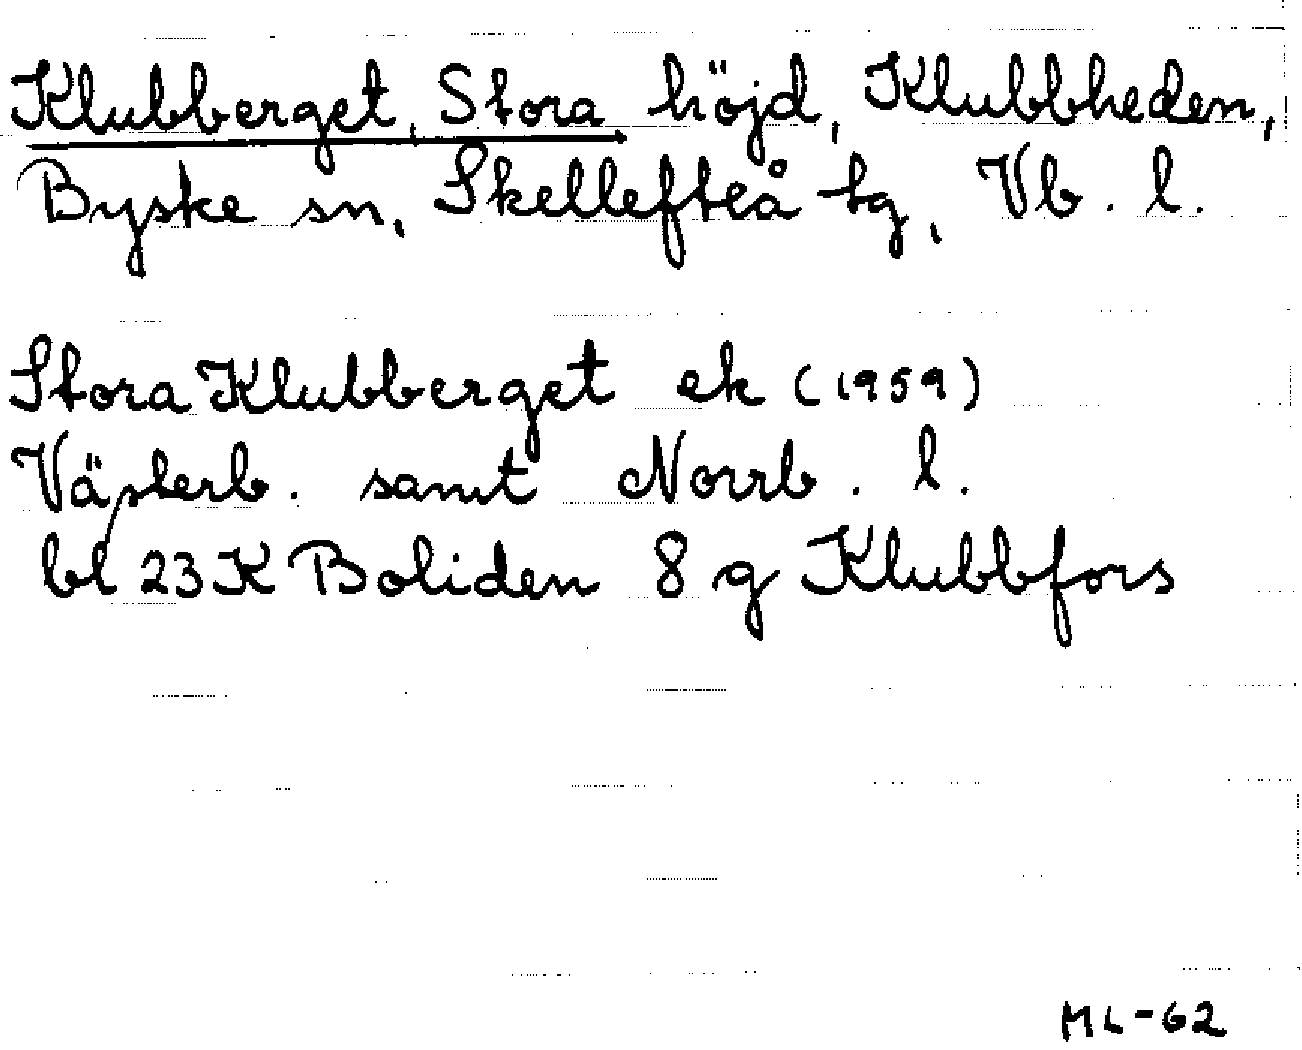 Klubberget, Stora höjd, Klubbheden,
Byske sn, Skellefteå tg, Vb. l.
Stora Klubberget ek (1959)
Västerb. samt Norrb. l.
bl 23 K Boliden 8 g Klubbfors
ML-62